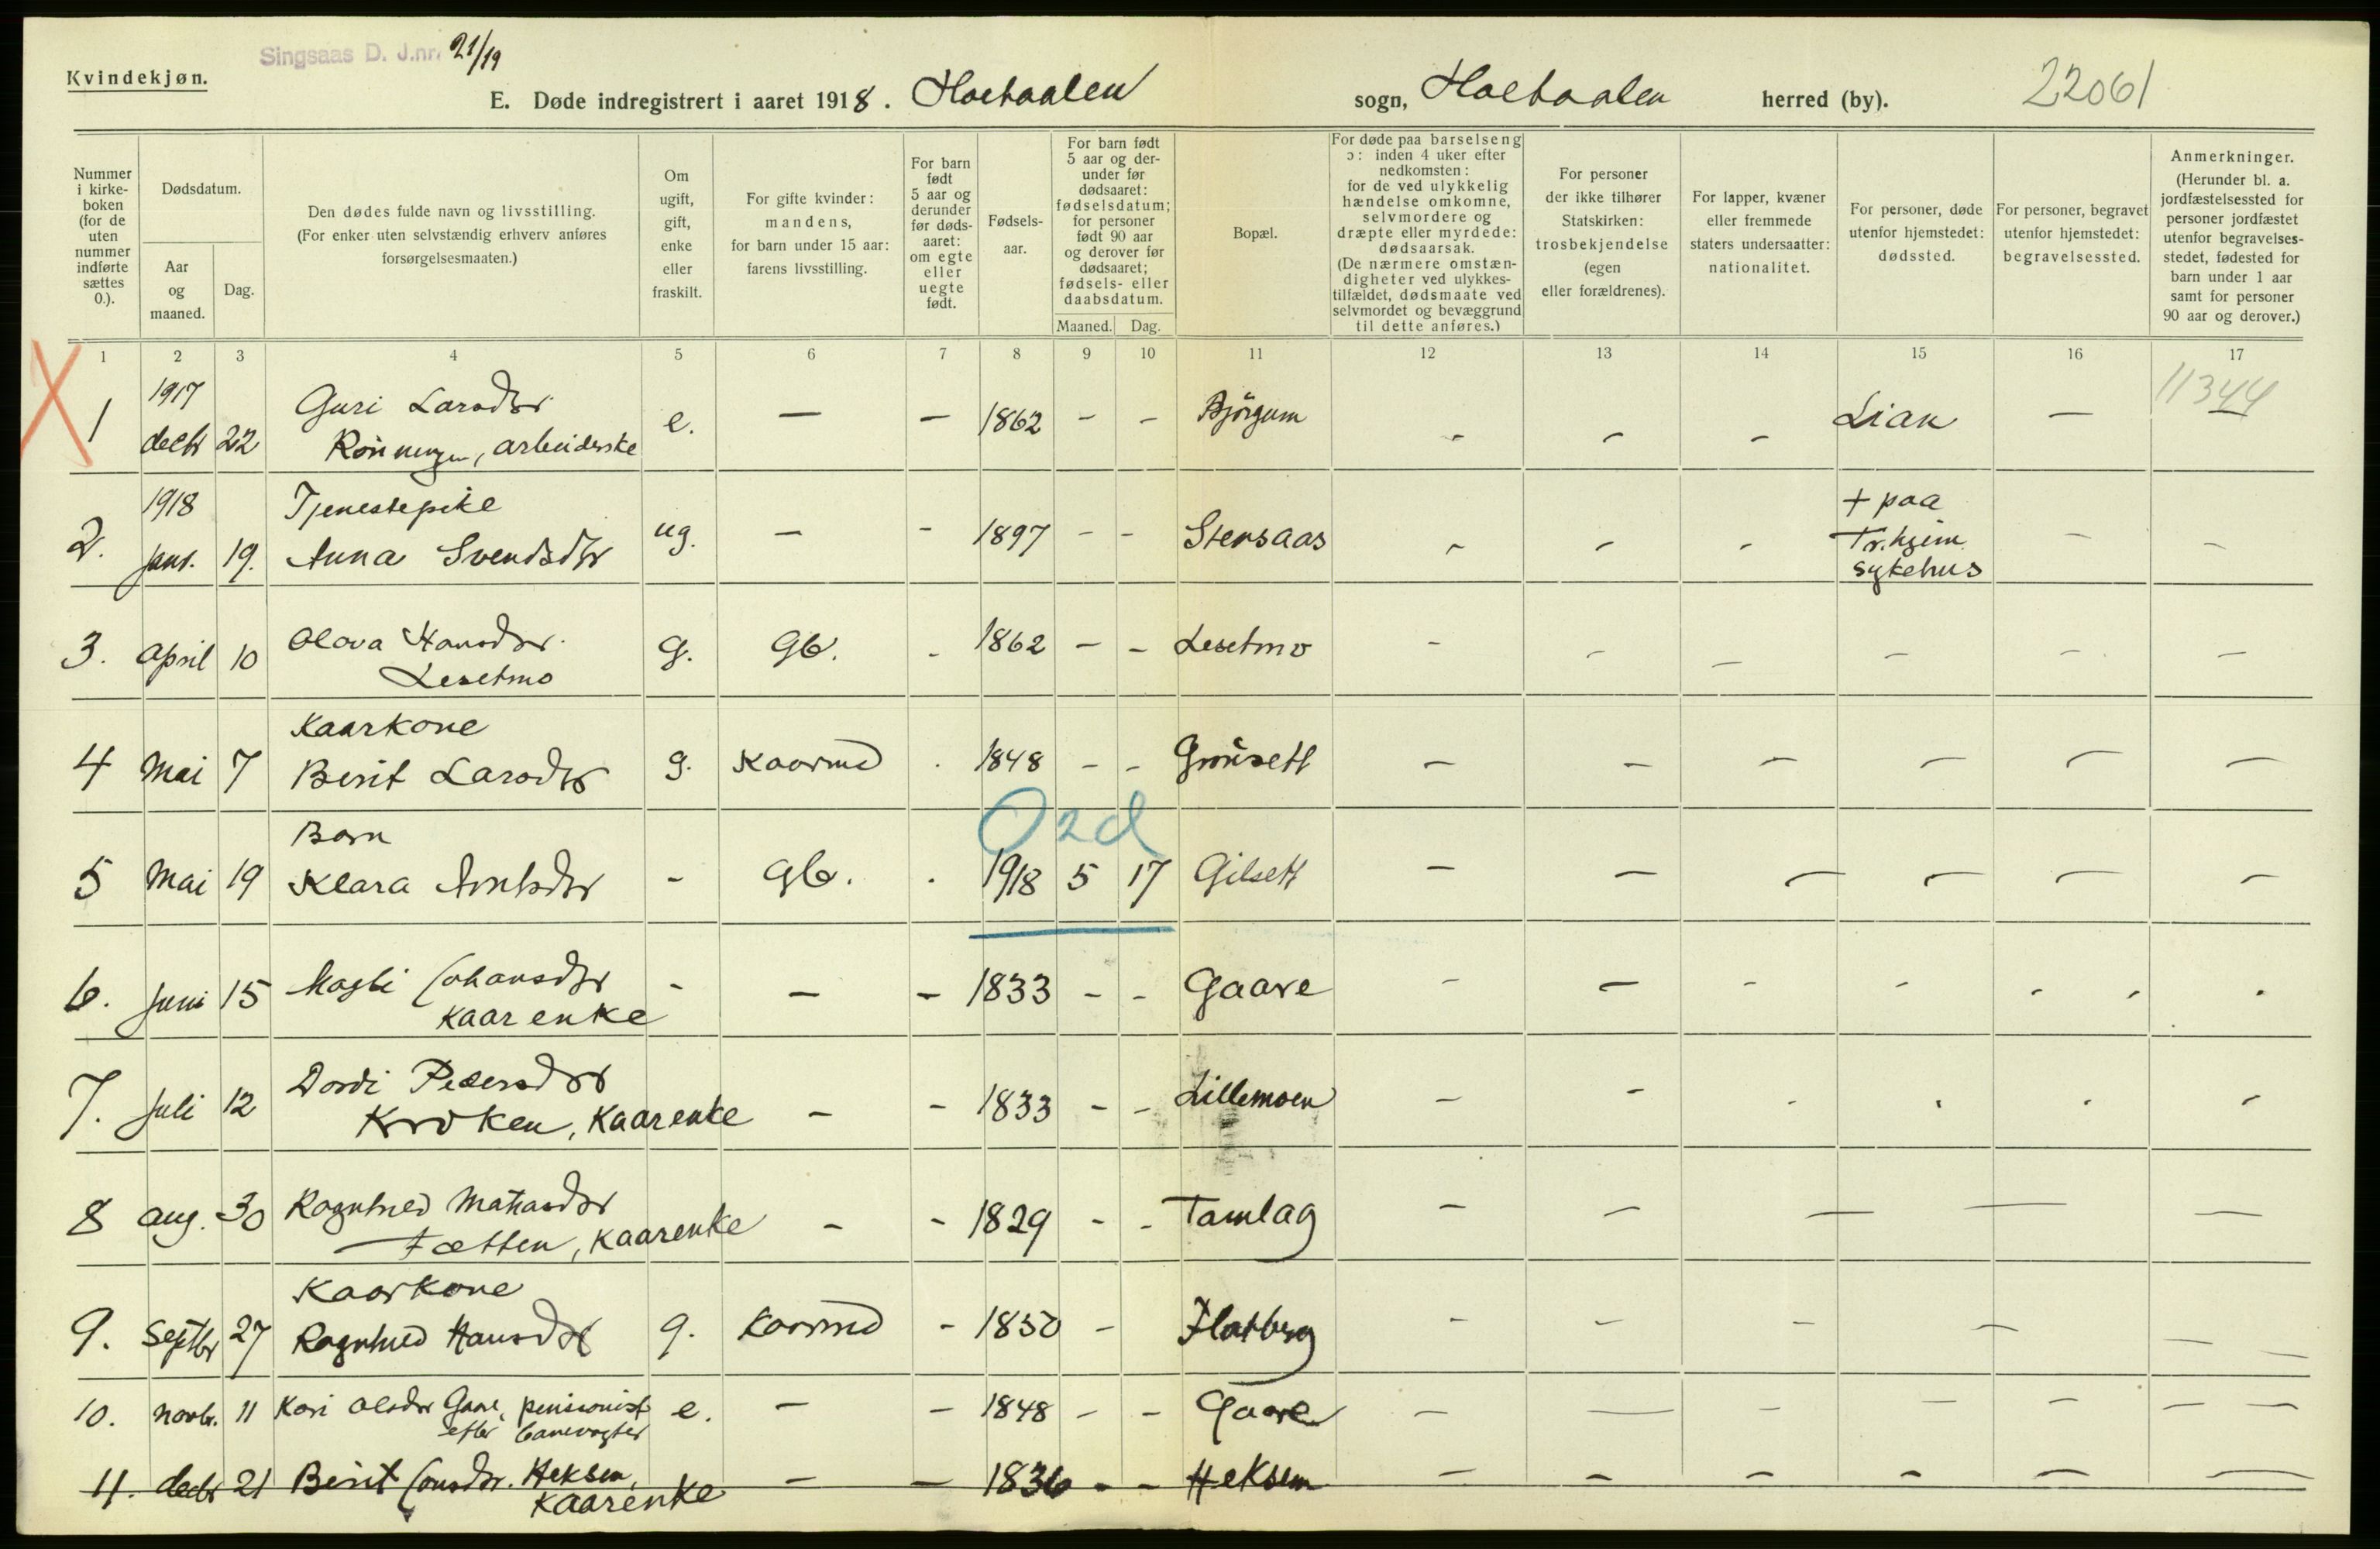 Singsaas D. J.nr. 21/19
Kvindekjøn.
E. Døde indregistrert i aaret 1918. Holtaalen sogn, Holtaalen herred (by). 22061
Nummer i kirkeboken (for de uten nummer indførte sættes 0.).
Dødsdatum.
Aar og maaned.
Dag.
Den dødes fulde navn og livsstilling.
(For enker uten selvstændig erhverv anføres forsørgelsesmaaten.)
Om ugift, gift, enke eller fraskilt.
For gifte kvinder: mandens, for barn under 15 aar: farens livsstilling.
For barn født 5 aar og derunder før dødsaaret: om egte eller uegte født.
Fødselsaar.
For barn født 5 aar og derunder før dødsaaret: fødselsdatum; for personer født 90 aar og derover før dødsaaret; fødsels- eller daabsdatum.
Maaned. Dag.
Bopæl.
For døde paa barselseng ɔ: inden 4 uker efter nedkomsten: for de ved ulykkelig hændelse omkomne, selvmordere og dræpte eller myrdede: dødsaarsak.
(De nærmere omstændigheter ved ulykkestilfældet, dødsmaate ved selvmordet og bevæggrund til dette anføres.)
For personer der ikke tilhører Statskirken: trosbekjendelse (egen eller forældrenes).
For lapper, kvæner eller fremmede staters undersaatter: nationalitet.
For personer, døde utenfor hjemstedet: dødssted.
For personer, begravet utenfor hjemstedet: begravelsessted.
Anmerkninger.
(Herunder bl. a. jordfæstelsessted for personer jordfæstet utenfor begravelsesstedet, fødested for barn under 1 aar samt for personer 90 aar og derover.)
1 2 3 4 5 6 7 8 9 10 11 12 13 14 15 16 17
X 1 1917 decbr 22 Guri Larsdtr e. — - 1862 - - Bjørgum - - - Lian — 11344
Rønningen, arbeiderske
2. 1918 janr. 19. Tjenestepike ug. — - 1897 - - Stensaas - - - + paa
Anna Svendsdtr Tr.hjem
sykehus - -
3. april 10 Olava Hansdtr. g. Gb. - 1862 - - Lesetmo - - - - - -
Lesetmo
4 Mai 7 Kaarkone
Berit Larsdtr g. Kaarmd . 1848 - - Grønsett - - - - - -
Ozd
5 Mai 19 Barn
Klara Arntsdtr - Gb. . 1918 5 17 Gilsett - - - - - -
6. Juni 15 Magli Johansdtr - - - 1833 - - Gaare - - - - - -
Kaarenke
7. Juli 12 Dordi Pedersdtr - - 1833 - - Lillemoen - - - - - -
Kroken, Kaarenke
8 aug. 30 Ragnhild Matiasdtr - - 1829 - - Tamlag - - - - - -
Tætten, Kaarenke
9. Septbr 27 Kaarkone
Ragnhild Hansdtr g. Kaarmd - 1850 - Flatberg - - - - - -
10. novbr. 11 Kari Olsdtr Gaare, pensionist e. - - 1848 - - Gaare - - - - - - -
efter banevogter
11. decbr 21 Berit Jonsdtr. Heksem, - - 1836 - - Heksem - - - - - -
Kaarenke